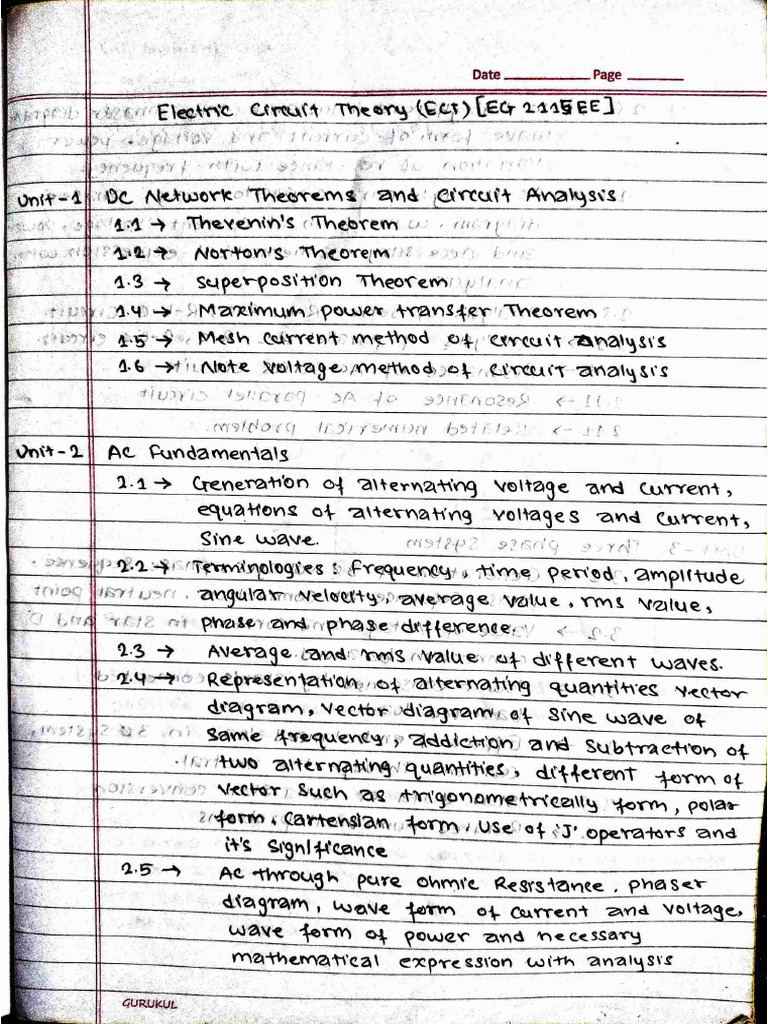 Date ________ Page ________
Electric Circuit Theory (ECT) [EG 2115EE]
Unit-1 DC Network Theorems and circuit Analysis
1.1 → Thevenin's Theorem
1.2 → Norton's Theorem
1.3 → Superposition Theorem
1.4 → Maximum power transfer Theorem
1.5 → Mesh current method of circuit analysis
1.6 → Note voltage method of circuit analysis
Unit-2 AC Fundamentals
2.1 → Generation of alternating voltage and current,
equations of alternating voltages and current,
Sine wave.
2.2 → Terminologies: frequency, time period, amplitude
angular velocity, average value, rms value,
phase and phase difference.
2.3 → Average and rms value of different waves.
2.4 → Representation of alternating quantities vector
diagram, vector diagram of sine wave of
same frequency, addiction and subtraction of
two alternating quantities, different form of
vector such as trigonometrically form, polar
form, Cartensian form. Use of 'J' operators and
it's significance
2.5 → AC through pure ohmic Resistance, phaser
diagram, wave form of current and voltage,
wave form of power and necessary
mathematical expression with analysis
GURUKUL